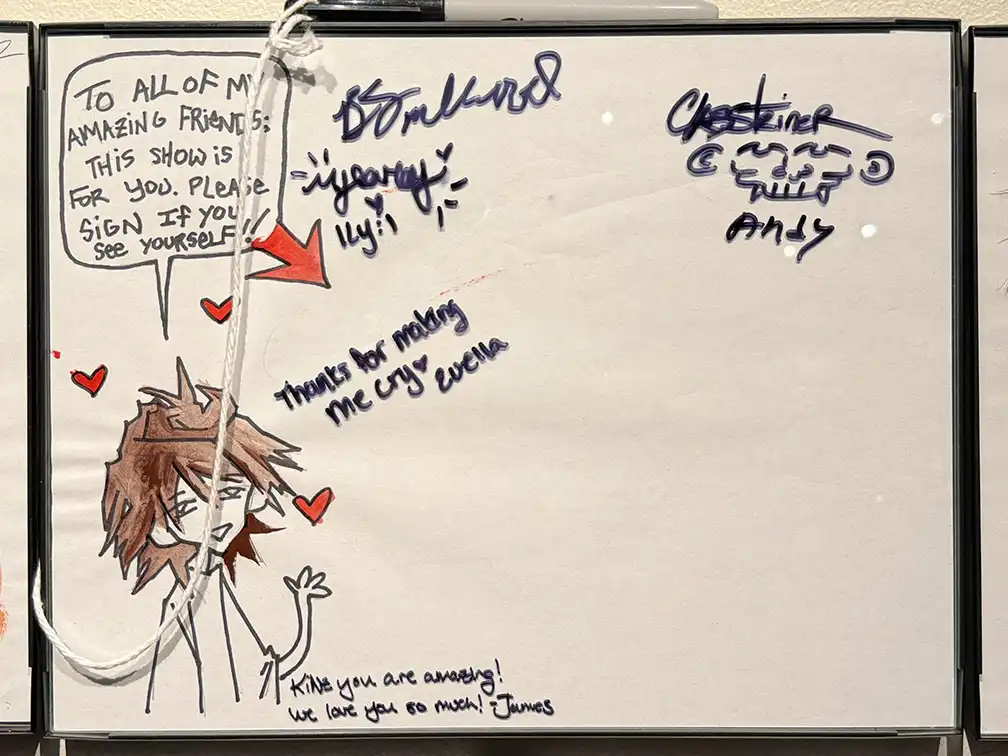 TO ALL OF MY
AMAZING FRIENDS:
THIS SHOW IS
FOR YOU. PLEASE
SIGN IF YOU
SEE YOURSELF!!
ily!!
Thanks for making
me cry
Andy
KiNZ you are amazing!
We love you so much! -James